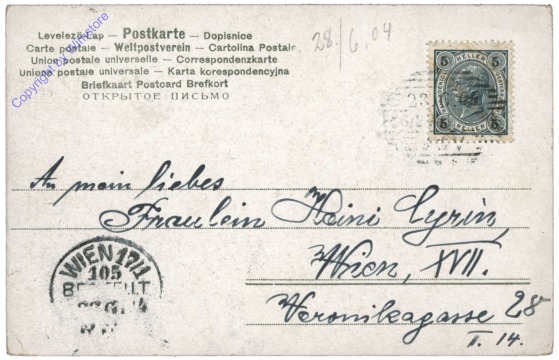 Levelező-Lap — Postkarte — Dopisnice
Carte postale — Weltpostverein — Cartolina Postale
Union postale universelle — Correspondenzkarte
Unione postale universale — Karta korespondencyjna
Briefkaart Postcard Brefkort
ОТКРЫТОЕ ПИСЬМО
28./6.04
Copyright by Winstore
5 HELLER 5
5 HELLER 5
An mein liebes
Fraulein Heini Cyrin,
Wien, XVII.
Veronikagasse 28
II. 14.
WIEN 17/1
105
BESTELLT